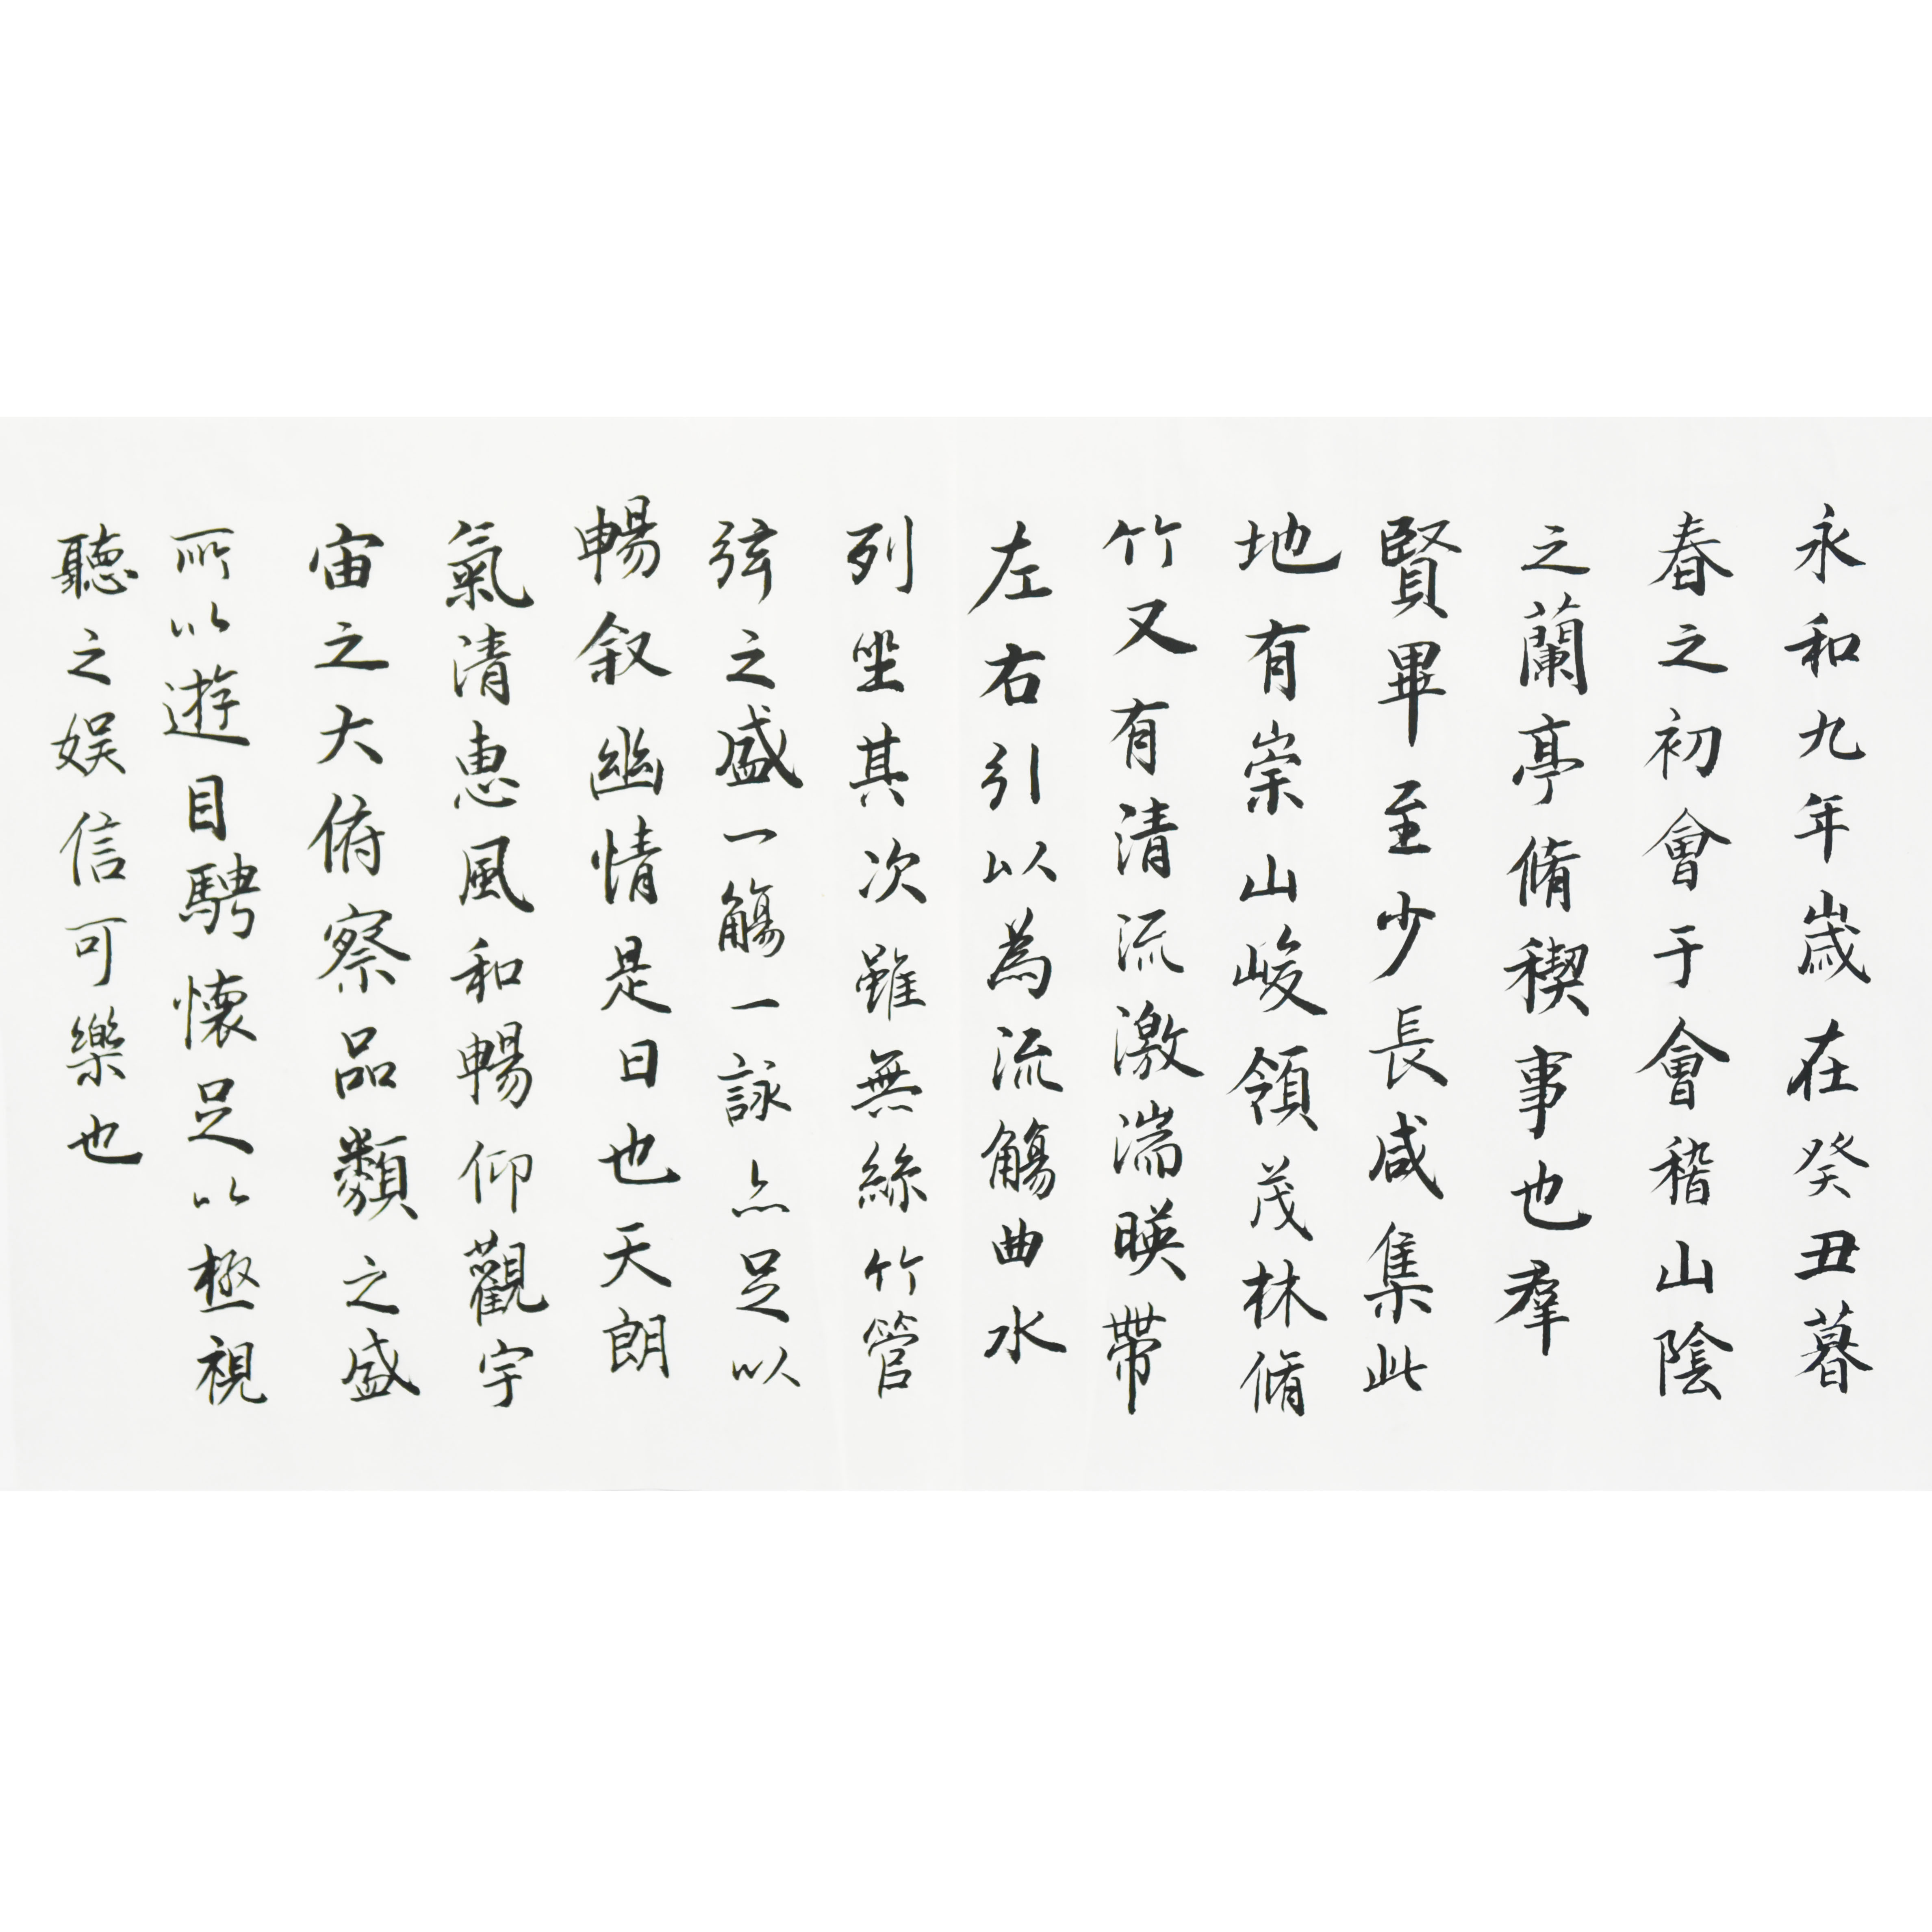 永和九年歲在癸丑暮
春之初會于會稽山陰
之蘭亭脩稧事也羣
賢畢至少長咸集此
地有崇山峻領茂林脩
竹又有清流激湍暎帶
左右引以為流觴曲水
列坐其次雖無絲竹管
弦之盛一觴一詠亦足以
暢叙幽情是日也天朗
氣清惠風和暢仰觀宇
宙之大俯察品類之盛
所以遊目騁懷足以極視
聽之娱信可樂也